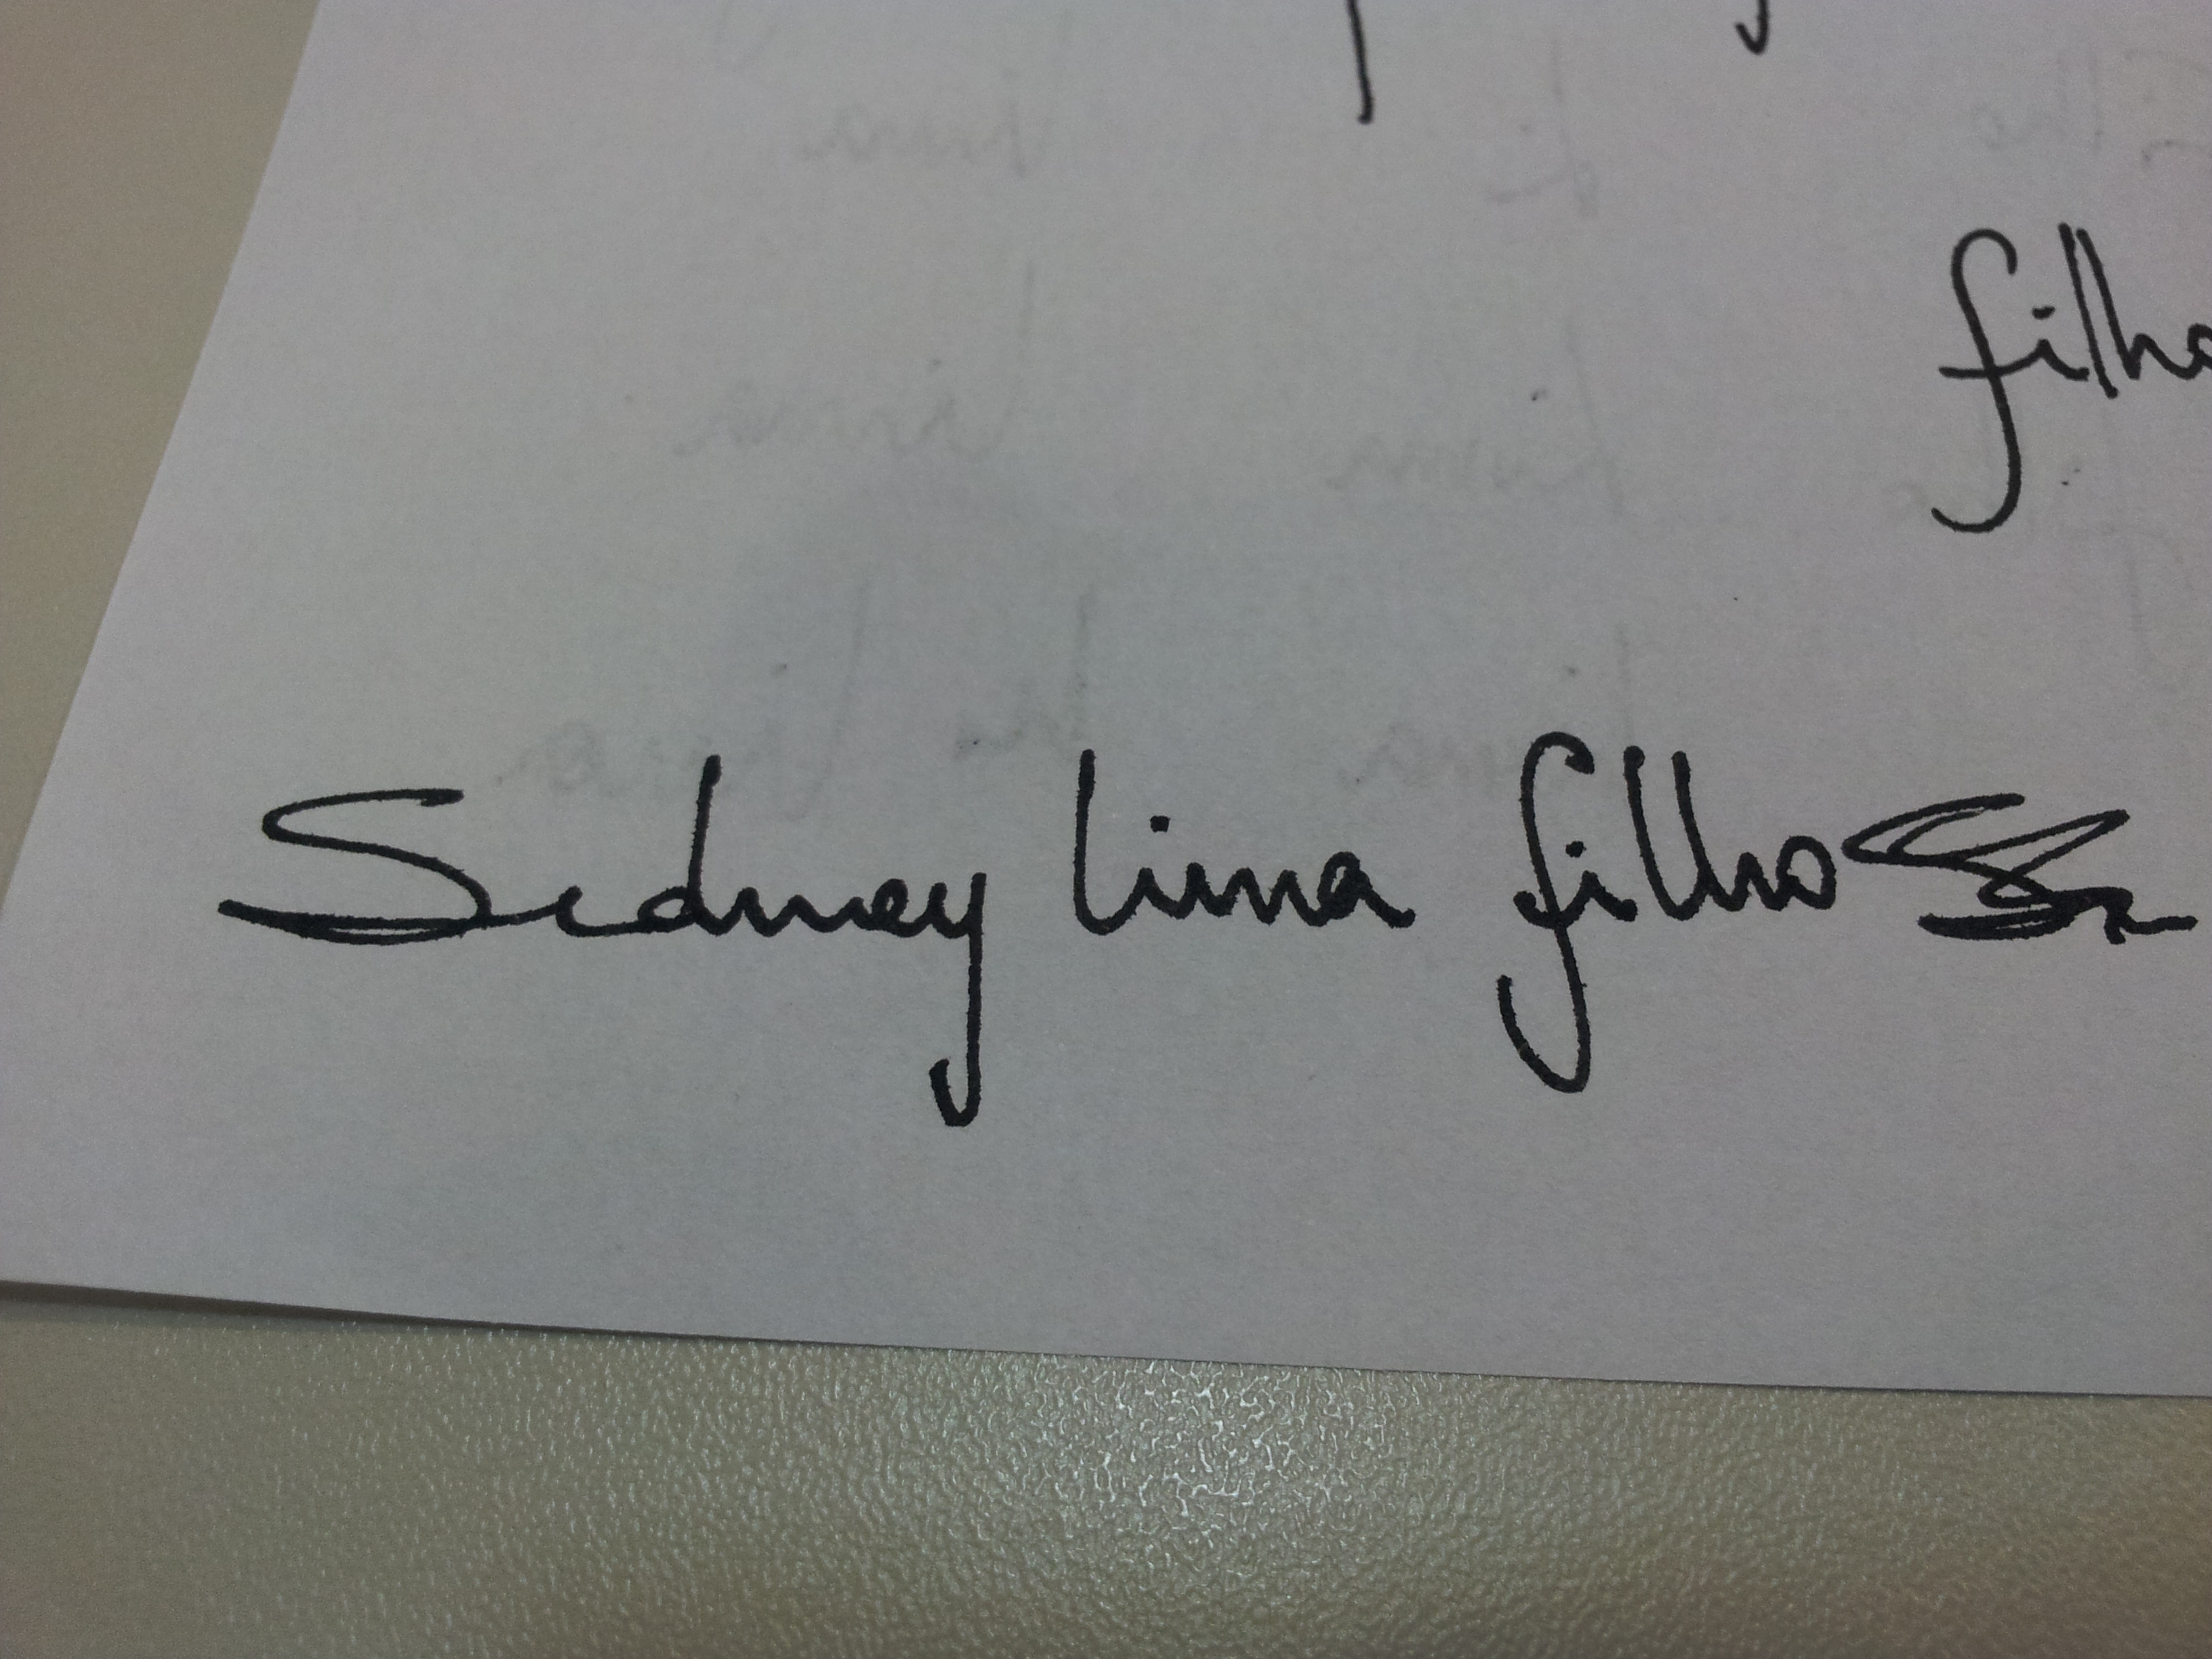 filho
Sidney lima filho